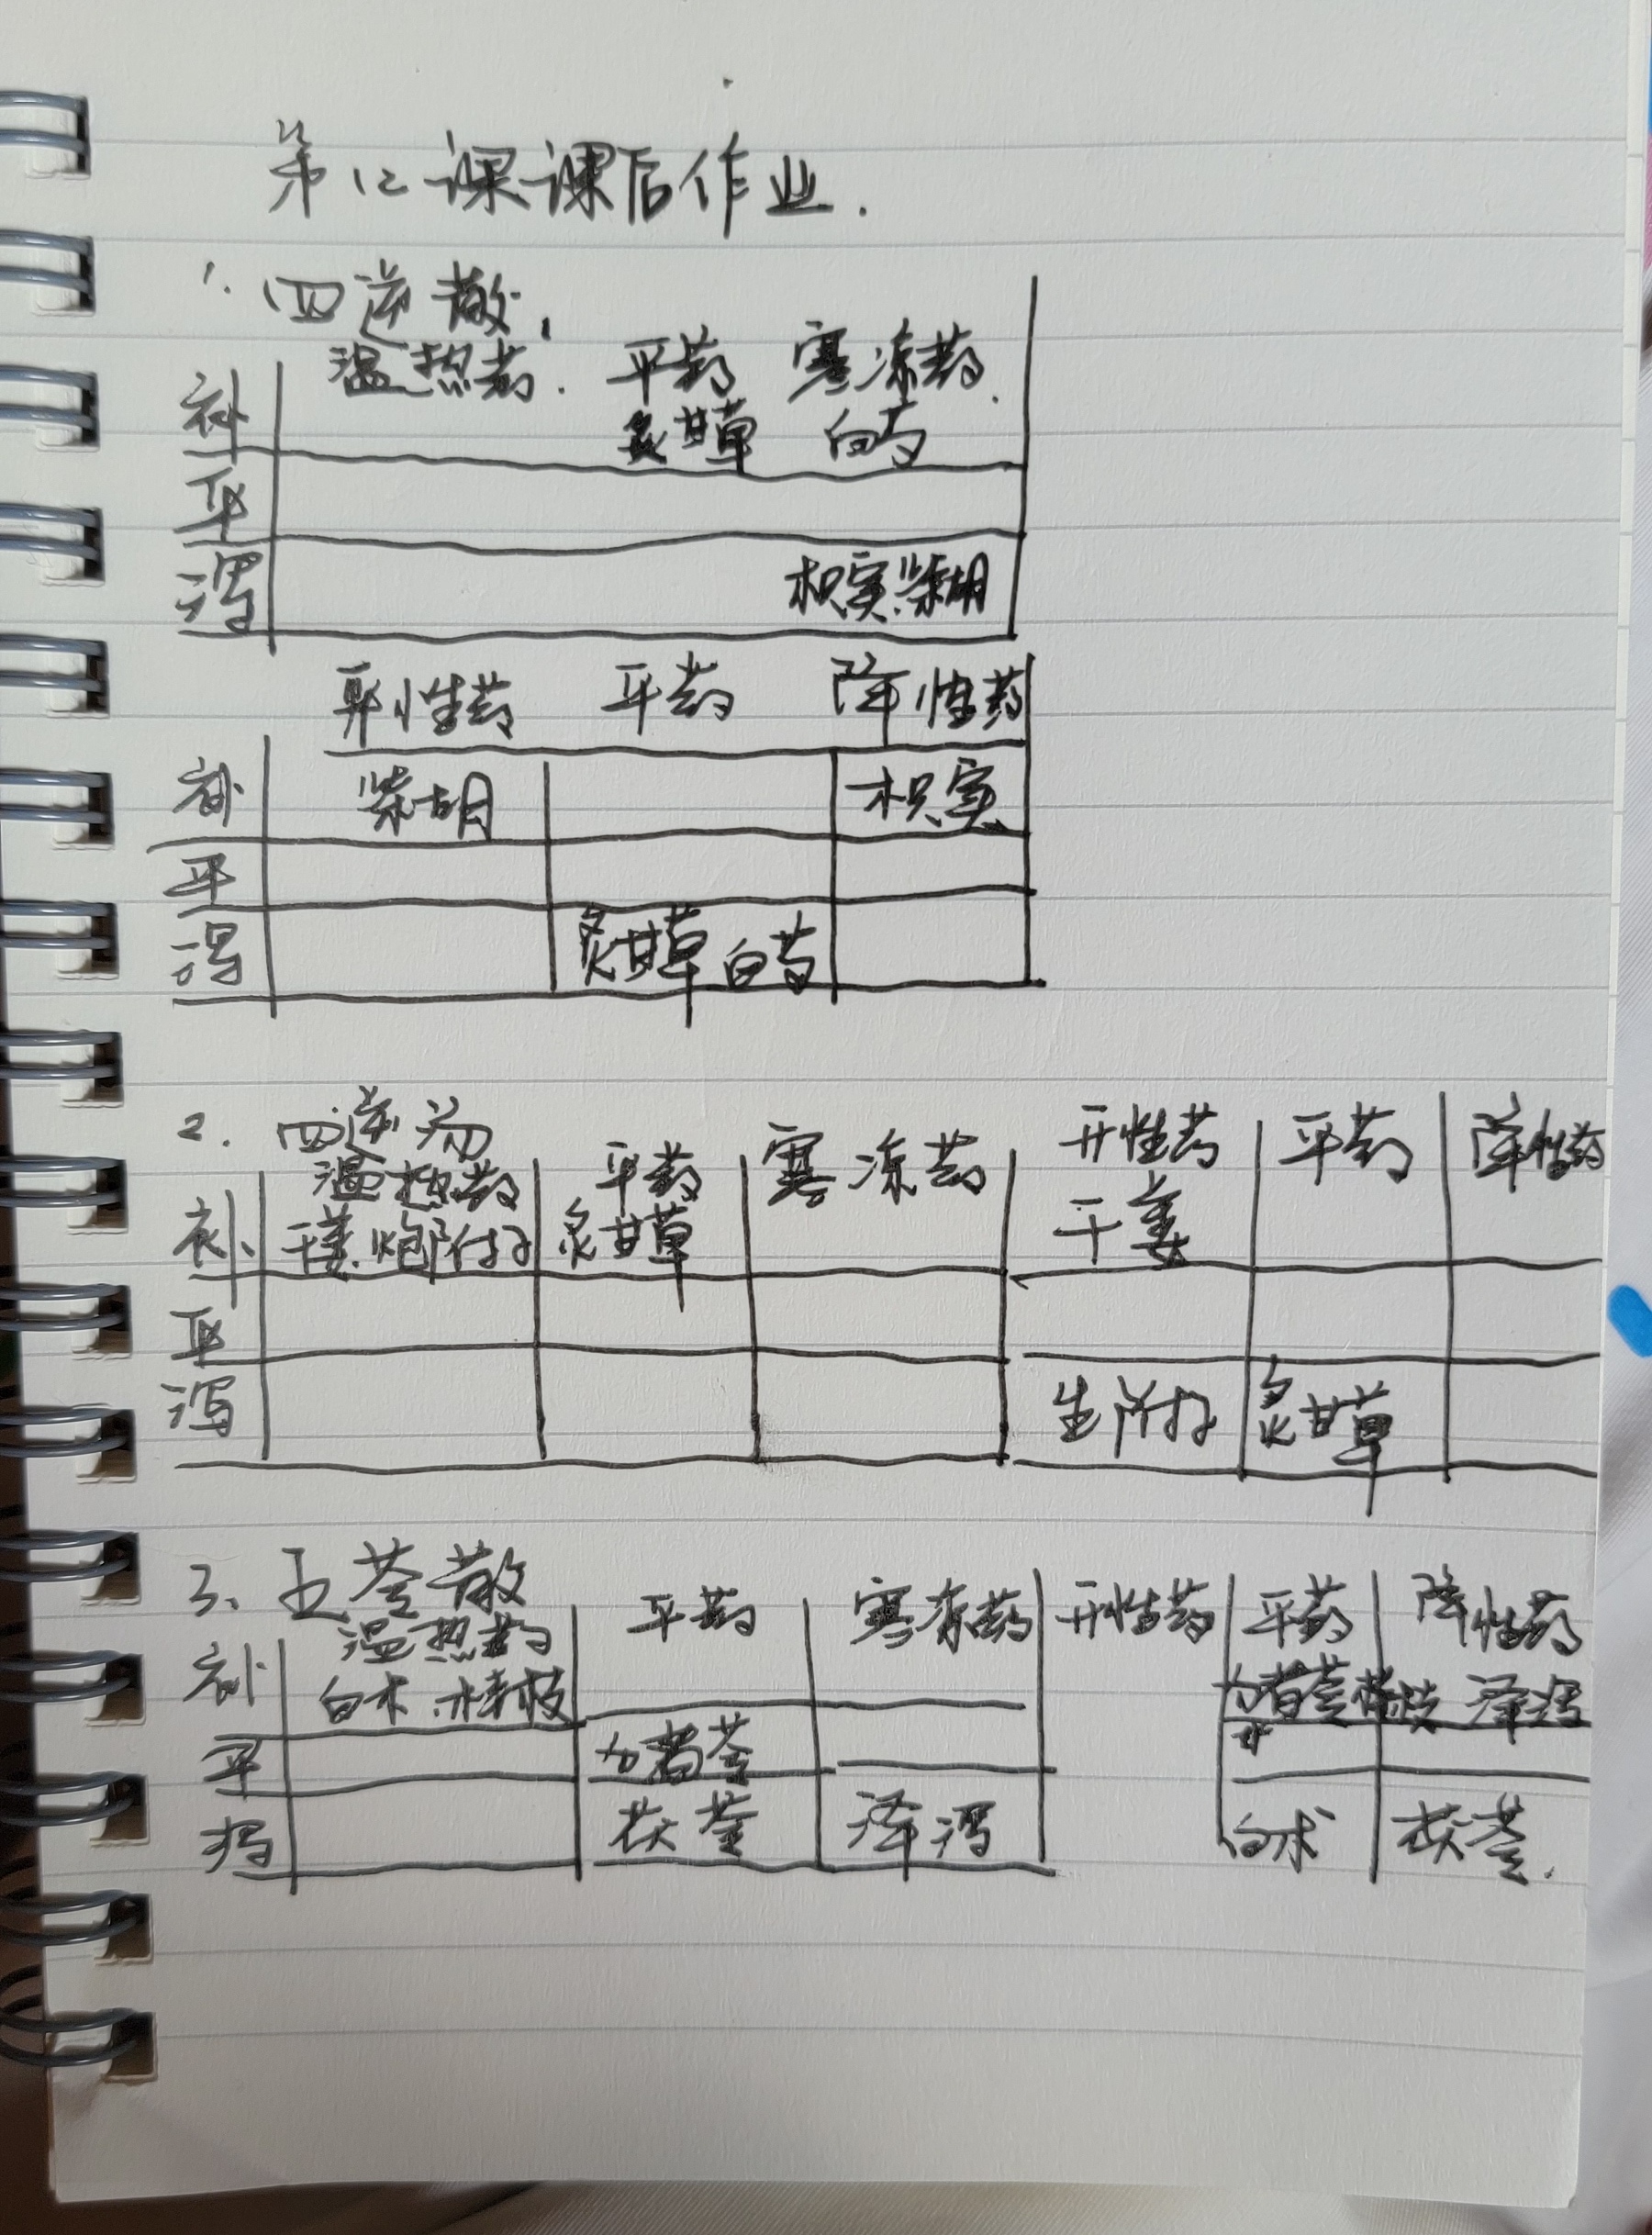 第12课课后作业.
1. 四逆散.
温热药. 平药 寒凉药.
补 炙甘草 白芍
平
泻 枳实 柴胡
升性药 平药 降性药
补 柴胡 枳实
平
泻 炙甘草 白芍
2. 四逆汤
温热药 平药 寒凉药 升性药 平药 降性药
补 干姜、炮附子 炙甘草 干姜
平
泻 生附子 炙甘草
3、五苓散
温热药 平药 寒凉药 升性药 平药 降性药
补 白术、桂枝 猪苓 桂枝 泽泻
平 猪苓
泻 茯苓 泽泻 白术 茯苓.